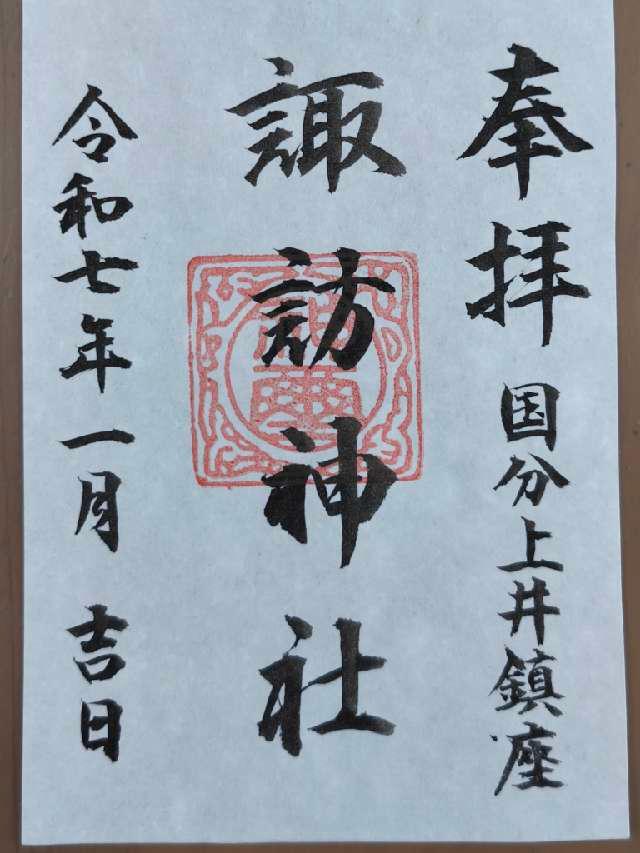 奉拝 国分上井鎮座
諏訪神社
令和七年一月 吉日